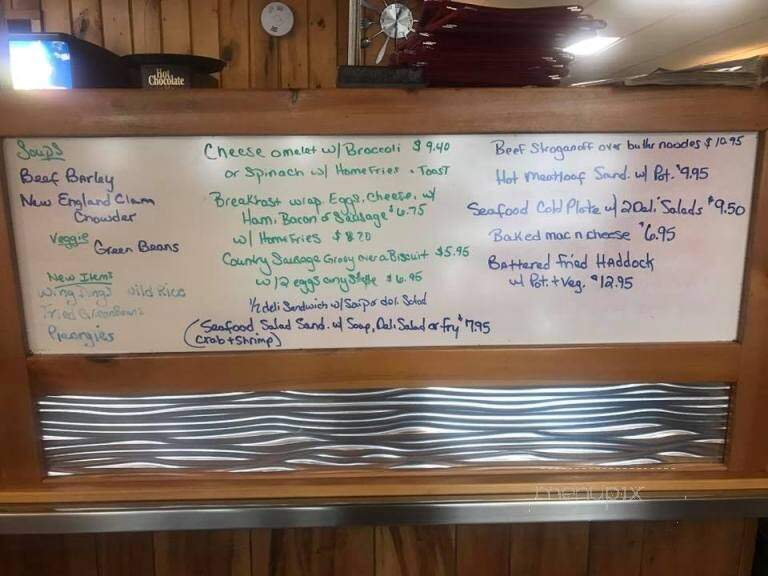 Hot
Chocolate
Soups
Beef Barley
New England Clam
Chowder
Veggie
Green Beans
New Items
Wing Dings Wild Rice
Fried Green Beans
Pierongies
Cheese omelet w/ Broccoli $9.40
or Spinach w/ Home Fries + Toast
Breakfast wrap. Eggs, Cheese, w/
Ham, Bacon or Sausage $6.75
w/ Home Fries $8.20
Country Sausage Gravy over a Biscuit $5.95
w/ 2 eggs any style $6.95
1/2 deli Sandwich w/ Soup or deli Salad
(Seafood Salad Sand. w/ Soup, Deli Salad or fry $7.95
Crab + Shrimp)
Beef Stroganoff over buttr noodes $10.95
Hot Meatloaf Sand. w/ Pot. $9.95
Seafood Cold Plate w/ 2 Deli Salads $9.50
Baked mac n cheese $6.95
Battered Fried Haddock
w/ Pot. + Veg. $12.95
menupix